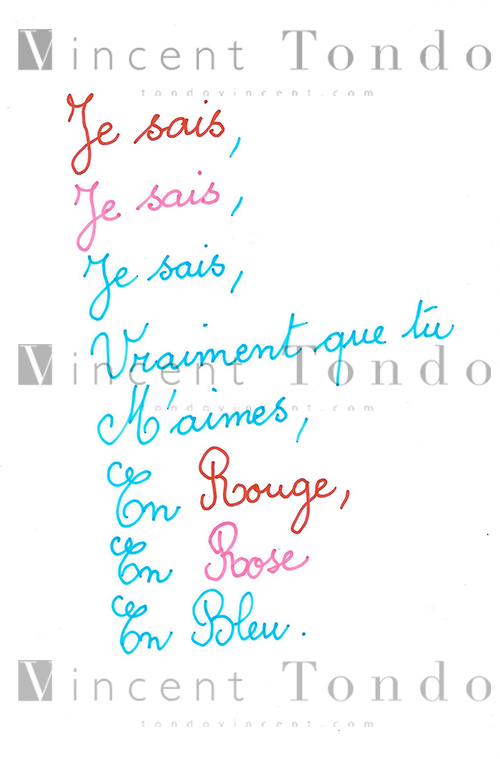 Vincent Tondo
tondovincent.com
Je sais,
Je sais,
Je sais,
Vraiment que tu
Vincent Tondo
M'aimes,
tondovincent.com
En Rouge,
En Rose
En Bleu.
Vincent Tondo
tondovincent.com